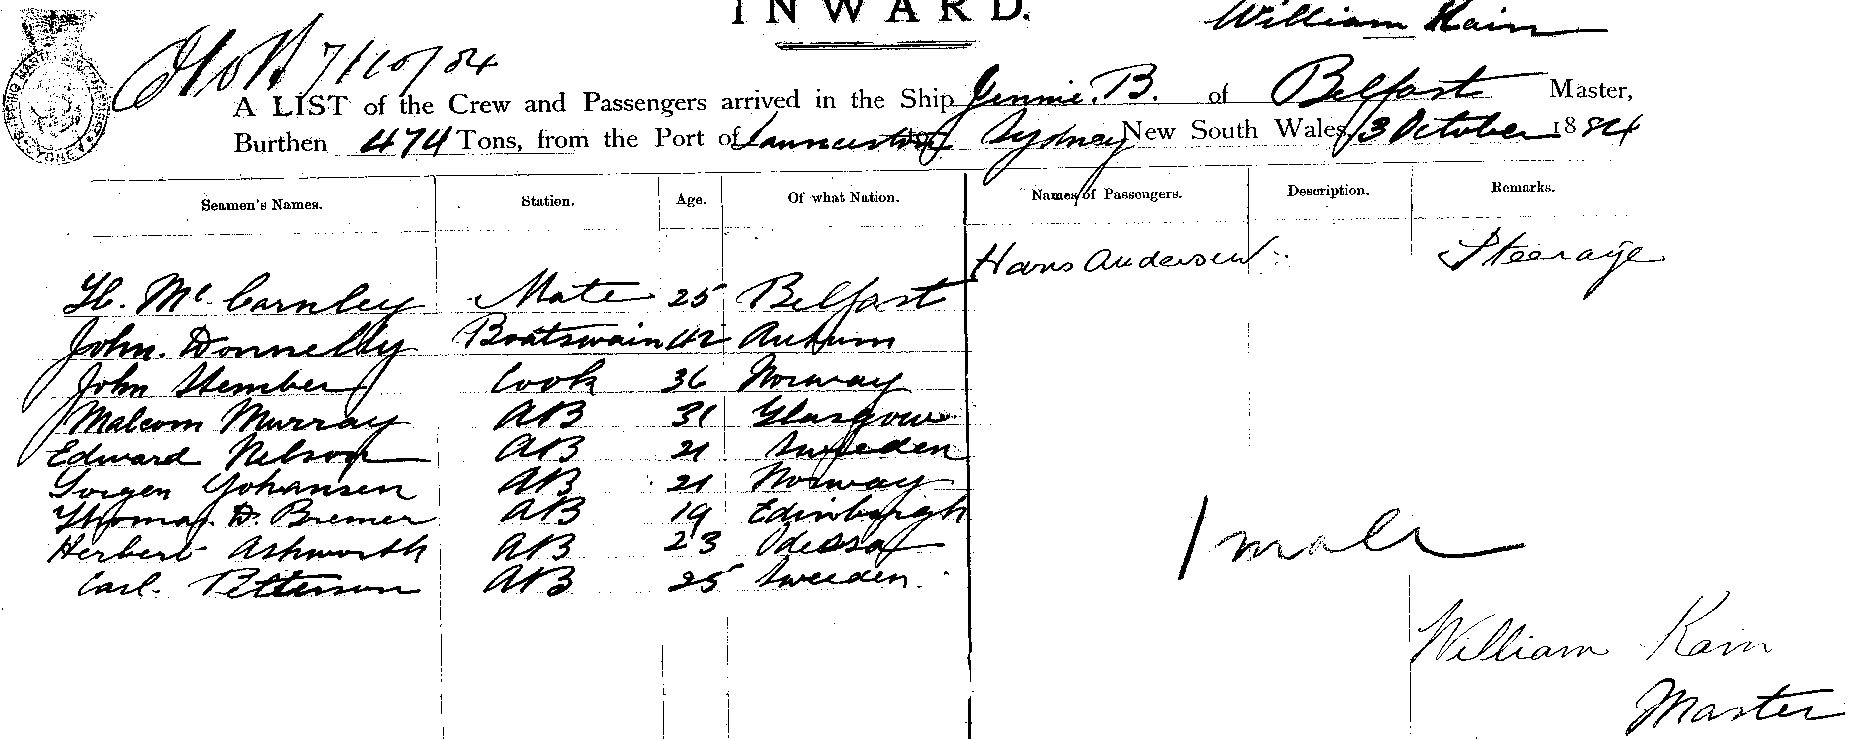 INWARD.
William Kain
7/10/84
A LIST of the Crew and Passengers arrived in the Ship Jennie. B. of Belfast Master,
Burthen 474 Tons, from the Port of Launceston to Sydney New South Wales, 3 October 1884
Seamen's Names. Station. Age. Of what Nation. Names of Passengers. Description. Remarks.
Hans Andersen Steerage
H. Mc Carnley Mate 25 Belfast
John. Donnelly Boatswain 42
John Stember Cook 36 Norway
Malcom Murray AB 31 Glasgow
Edward Nelson AB 21 Sweden
Jorgen Johansen AB 21 Norway
Thomas D. Bremer AB 19 Edinburgh
Herbert Ashworth AB 23 Odessa
Carl. Petterson AB 25 Sweeden.
1 male
William Kain
Master